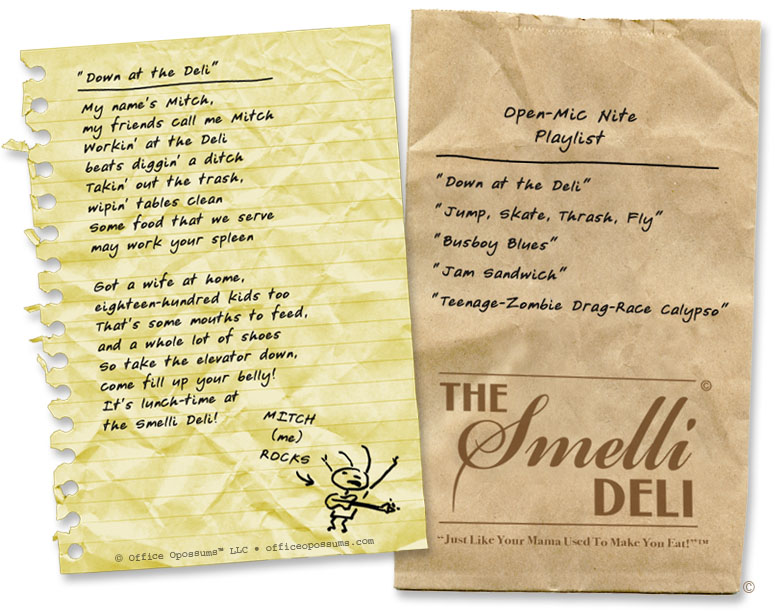 "Down at the Deli"
My name's Mitch,
my friends call me Mitch
Workin' at the Deli
beats diggin' a ditch
Takin' out the trash,
wipin' tables clean
Some food that we serve
may work your spleen
Got a wife at home,
eighteen-hundred kids too
That's some mouths to feed,
and a whole lot of shoes
So take the elevator down,
come fill up your belly!
It's lunch-time at
the Smelli Deli!
MITCH
(me)
ROCKS
© Office Opossums™ LLC • officeopossums.com
Open-Mic Nite
Playlist
"Down at the Deli"
"Jump, Skate, Thrash, Fly"
"Busboy Blues"
"Jam Sandwich"
"Teenage-Zombie Drag-Race Calypso"
©
THE
Smelli
DELI
"Just Like Your Mama Used To Make You Eat!"™
©